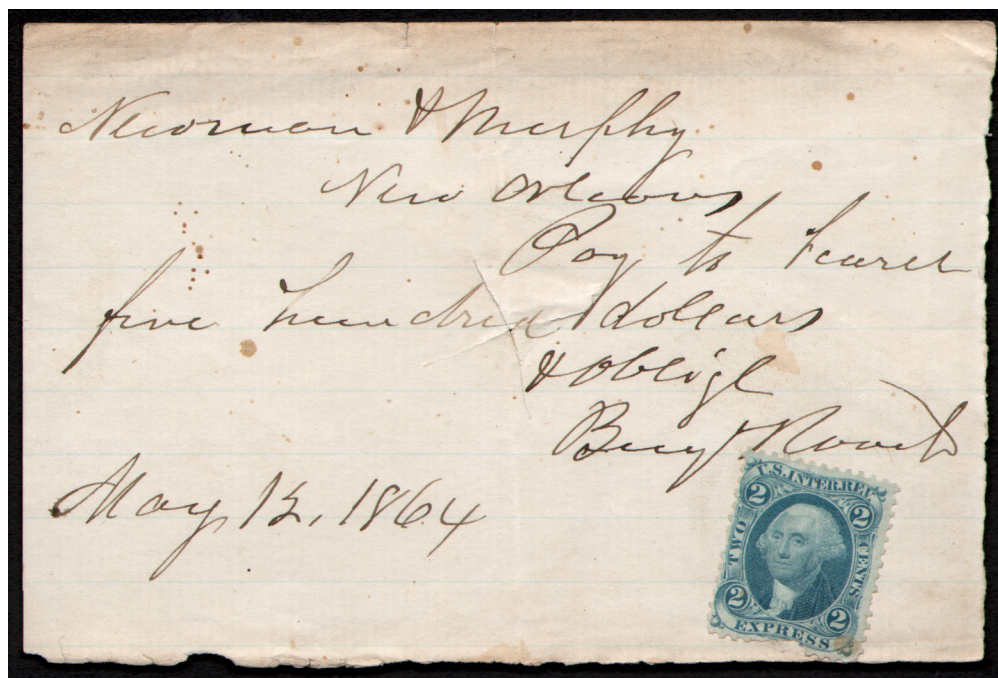 Newman & Murphy
New Orleans
Pay to
five hundred dollars
& Oblige
Benj
May 12, 1864
U.S. INTER. REV.
2 2
TWO CENTS
2 2
EXPRESS